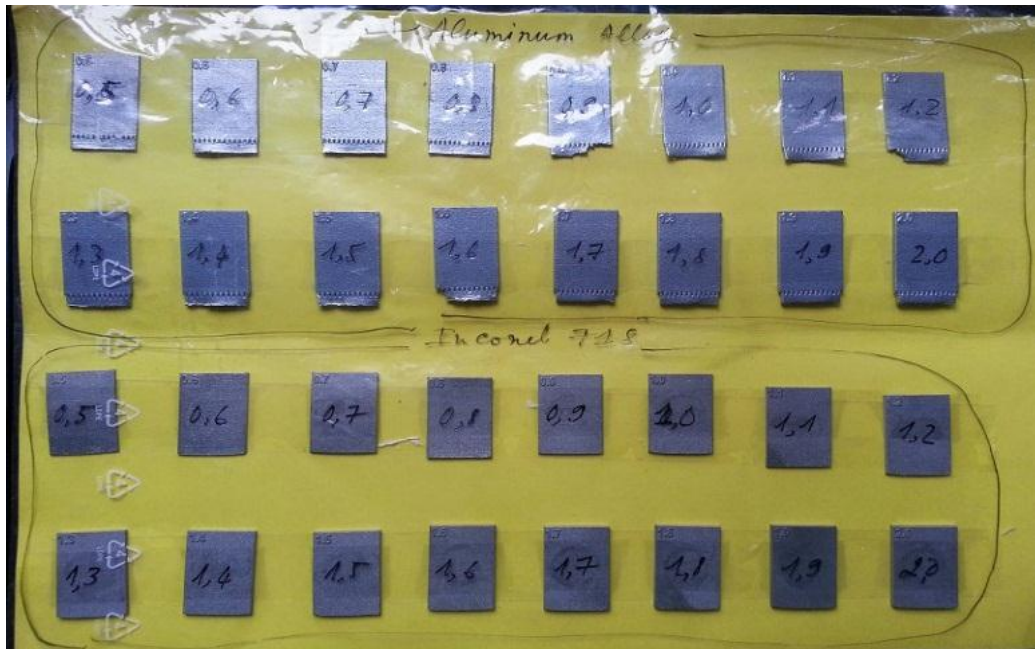 Aluminum Alloy
0,5 0,6 0,7 0,8 0,9 1,0 1,1 1,2
1,3 1,4 1,5 1,6 1,7 1,8 1,9 2,0
Inconel 718
0,5 0,6 0,7 0,8 0,9 1,0 1,1 1,2
1,3 1,4 1,5 1,6 1,7 1,8 1,9 2,0